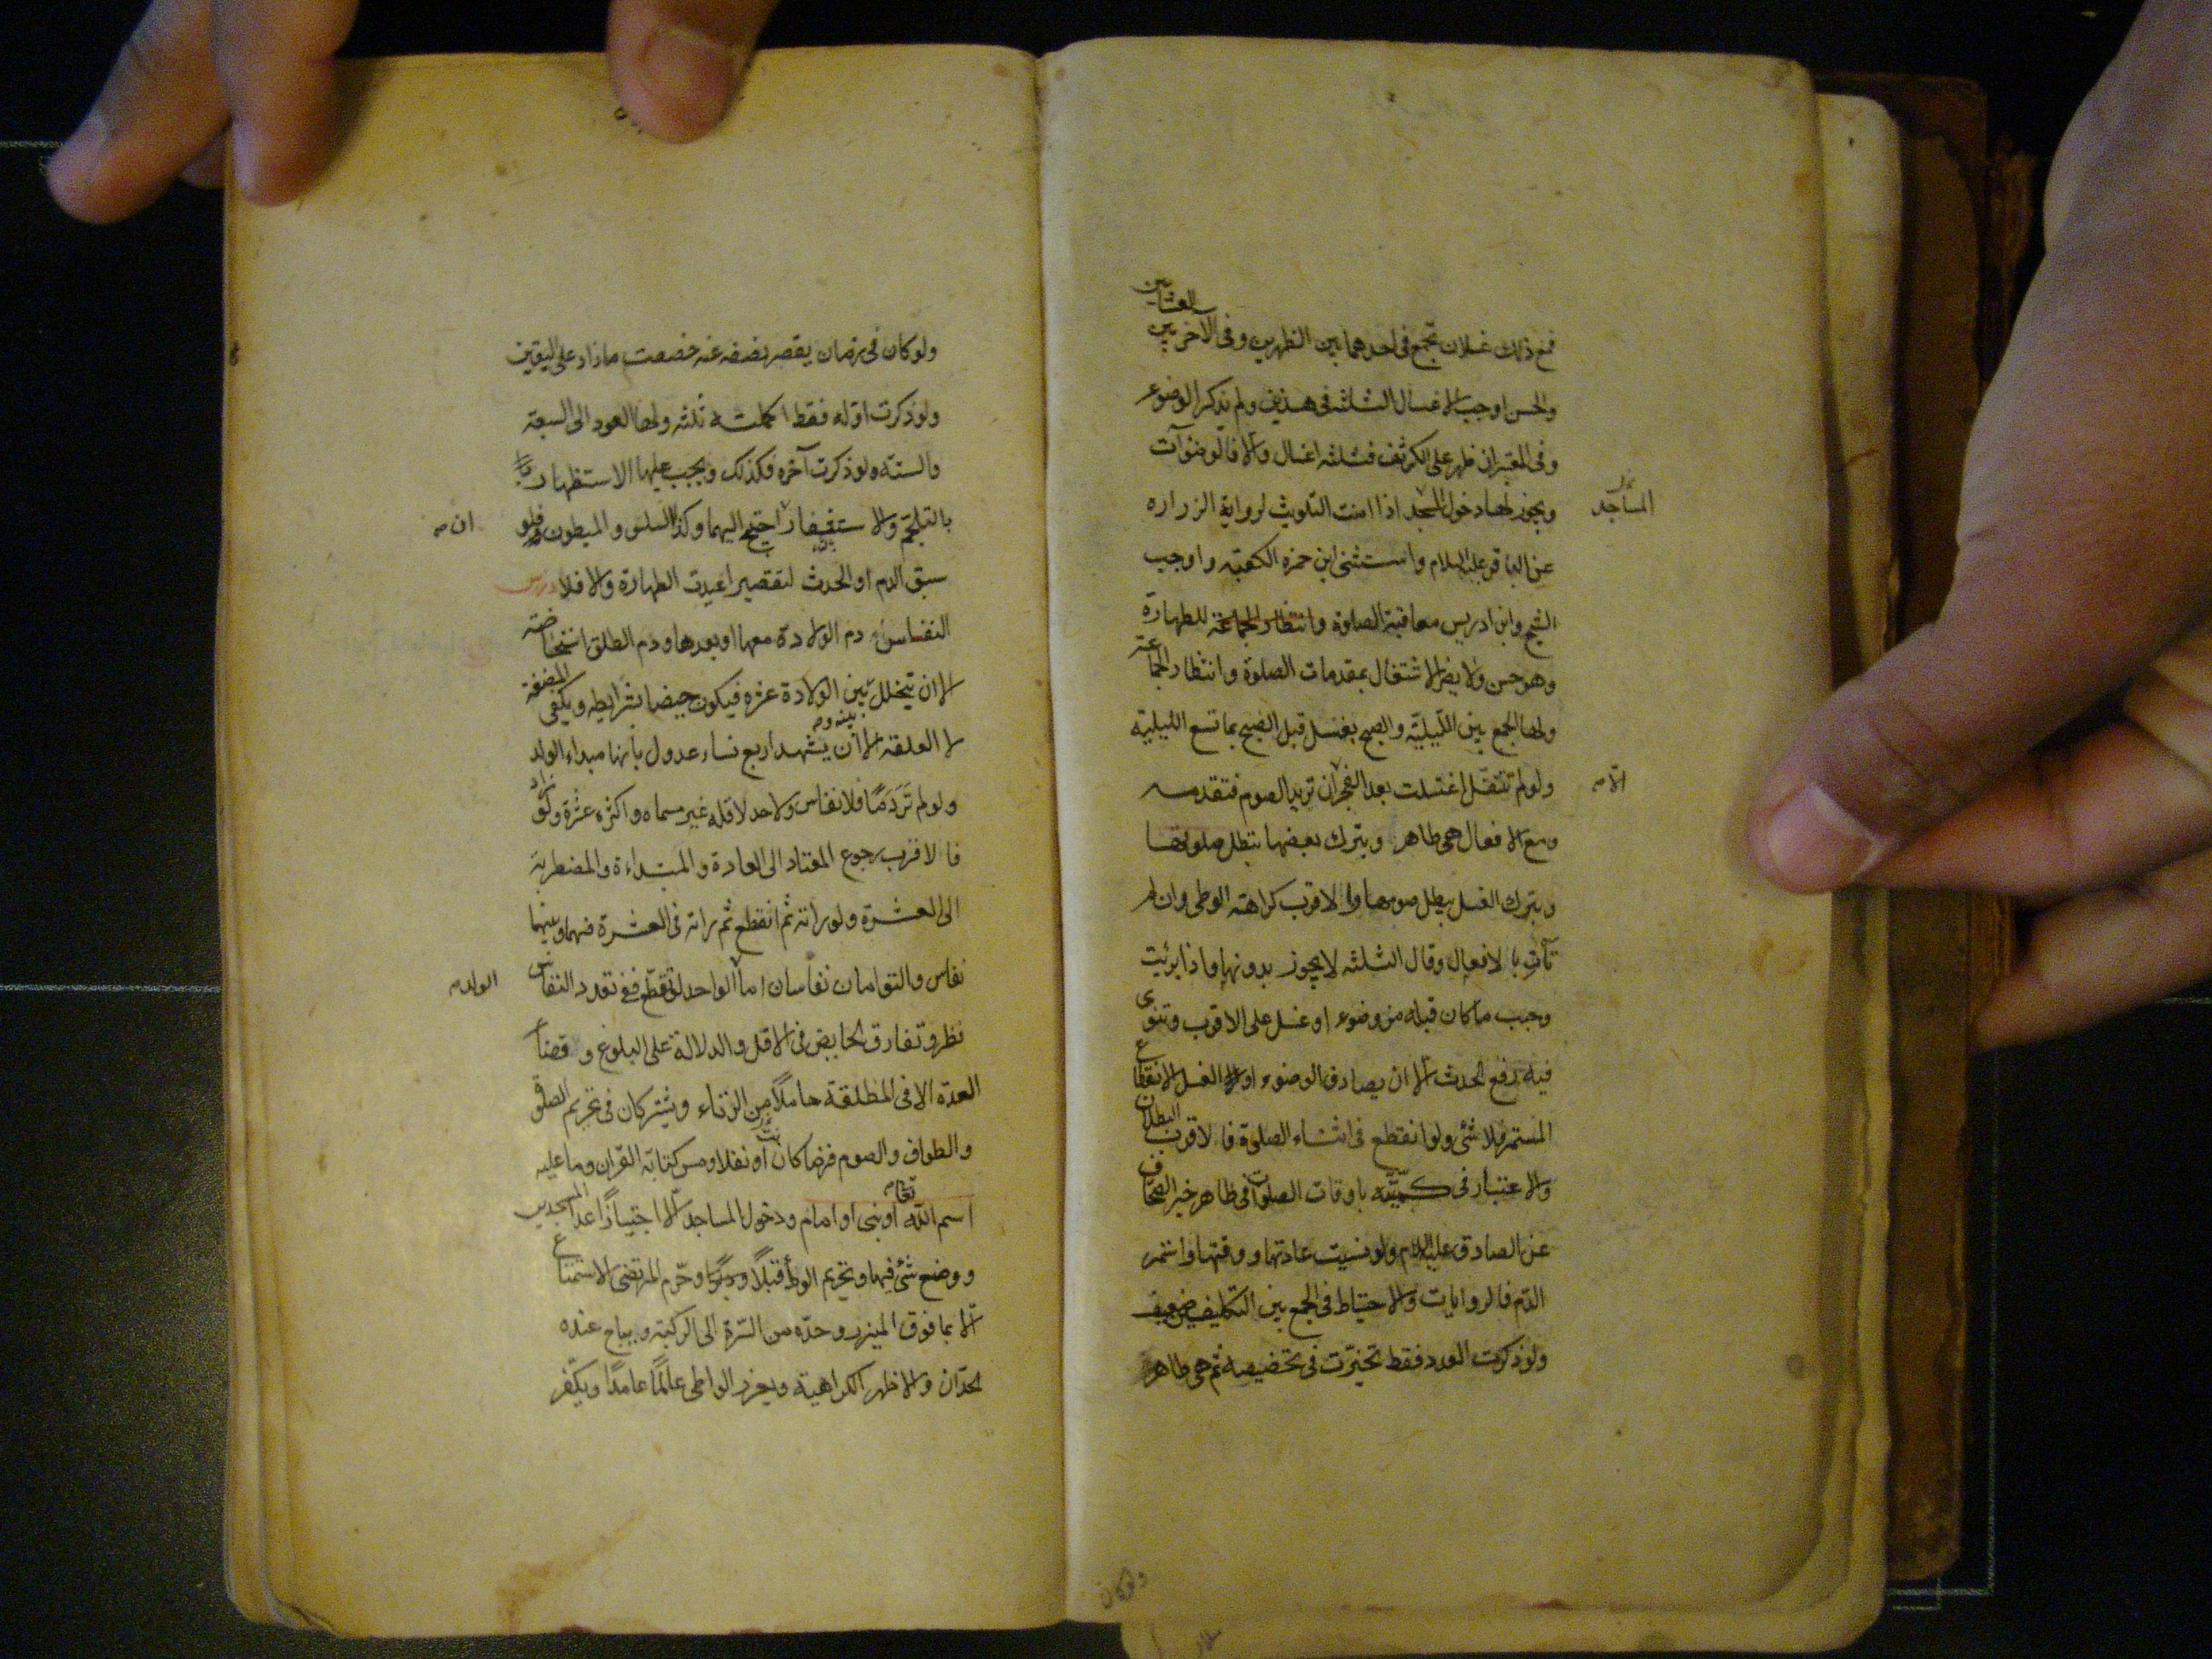 العشائين
فمع ذلك غسلان تجمع في احدهما بين الظهرين وفي الاخر بين
والحسن اوجب الاغسال الثلثة في هذين ولم يذكر الوضوء
وفي المعتبر ان ظهر على الكرسف فثلثة اغسال والا فالوضوآت
المساجد
ويجوز لها دخول المسجد اذا امنت التلويث لرواية الزراره
عن الباقر عليه السلام واستثنى ابن حمزه الكعبة واوجب
الشيخ وابن ادريس معاقبة الصلوة وانتظار الجماعة للطهارة
وهو حسن ولا يضر الاشتغال بمقدمات الصلوة وانتظار الجماعة
ولها الجمع بين الليلية والصبح بغسل قبل الصبح بما تسع الليلية
الا
ولو لم تتنفل اغتسلت بعد الفجر ان تريد الصوم فتقدمه
ومع الافعال هي طاهر وبترك بعضها تبطل صلوتها
وبترك الغسل يبطل صومها والاقرب كراهة الوطى وان لم
تأت بالافعال وقال الثلثة لا يجوز بدونها واذا برئت
وجب ما كان قبله من وضوء او غسل على الاقرب وتنوى
فيه رفع الحدث الا ان يصادف الوضوء او الغسل الانقطاع
المستمر فلا شئ ولو انقطع في اثناء الصلوة فالاقرب البطلان
والاعتبار في كميته باوقات الصلوات في ظاهر خبر الصحاف
عن الصادق عليه السلام ولو نسيت عادتها ووقتها واستمر
الدم فالروايات والاحتياط في الجمع بين التكليف ضعيف
ولو ذكرت العدد فقط تخيرت في تخصيصه ثم هي طاهر
ولو كان
ولو كان في زمان يقصر نصفه عنه خصصت ما زاد على اليقين
ولو ذكرت اوله فقط اكملته ثلثه ولها العود الى السبعة
والستة ولو ذكرت آخره فكذلك ويجب عليها الاستظهار
بالتلجم والاستثفار احتيج اليهما وكذا السلس والمبطون فلو
ان
سبق الدم او الحدث لتقصير اعيدت الطهارة والا فلا درس
النفاس دم الولادة معها او بعدها ودم الطلق استحاضة
الا ان يتخلل بين الولادة عشرة فيكون حيضا بشرايطه ويكفى المضغة
بينه و
لا العلقة الا ان يشهد اربع نساء عدول بانها مبداء الولد
ولو لم تر دما فلا نفاس ولا حد لاقله غير مسماه واكثره عشرة ولو زاد
فالاقرب رجوع المعتاد الى العادة والمبتداءة والمضطربة
الى العشرة ولو راته ثم انقطع ثم راته في العشرة فهما وبينهما
نفاس والتوامان نفاسان اما الواحد لو تقطع ففي تعدد النفاس
الولد
نظر وتفارق الحايض في الاقل والدلالة على البلوغ وقضاء
العدة الا في المطلقة حاملا من الزناء ويشتركان في تحريم الصلوة
والطواف والصوم فرضا كان او نفلا ومس كتابة القران وما عليه
اسم الله او نبي او امام ودخول المساجد الا اجتيازا عدا المسجدين
ووضع شئ فيها وتحريم الوطأ قبلا ودبرا وحرم المرتضى الاستمتاع
الا بما فوق الميزر وحده من السرة الى الركبة ويباح عنده
الحدان والاظهر الكراهية ويعزر الواطى عالما عامدا ويكفر